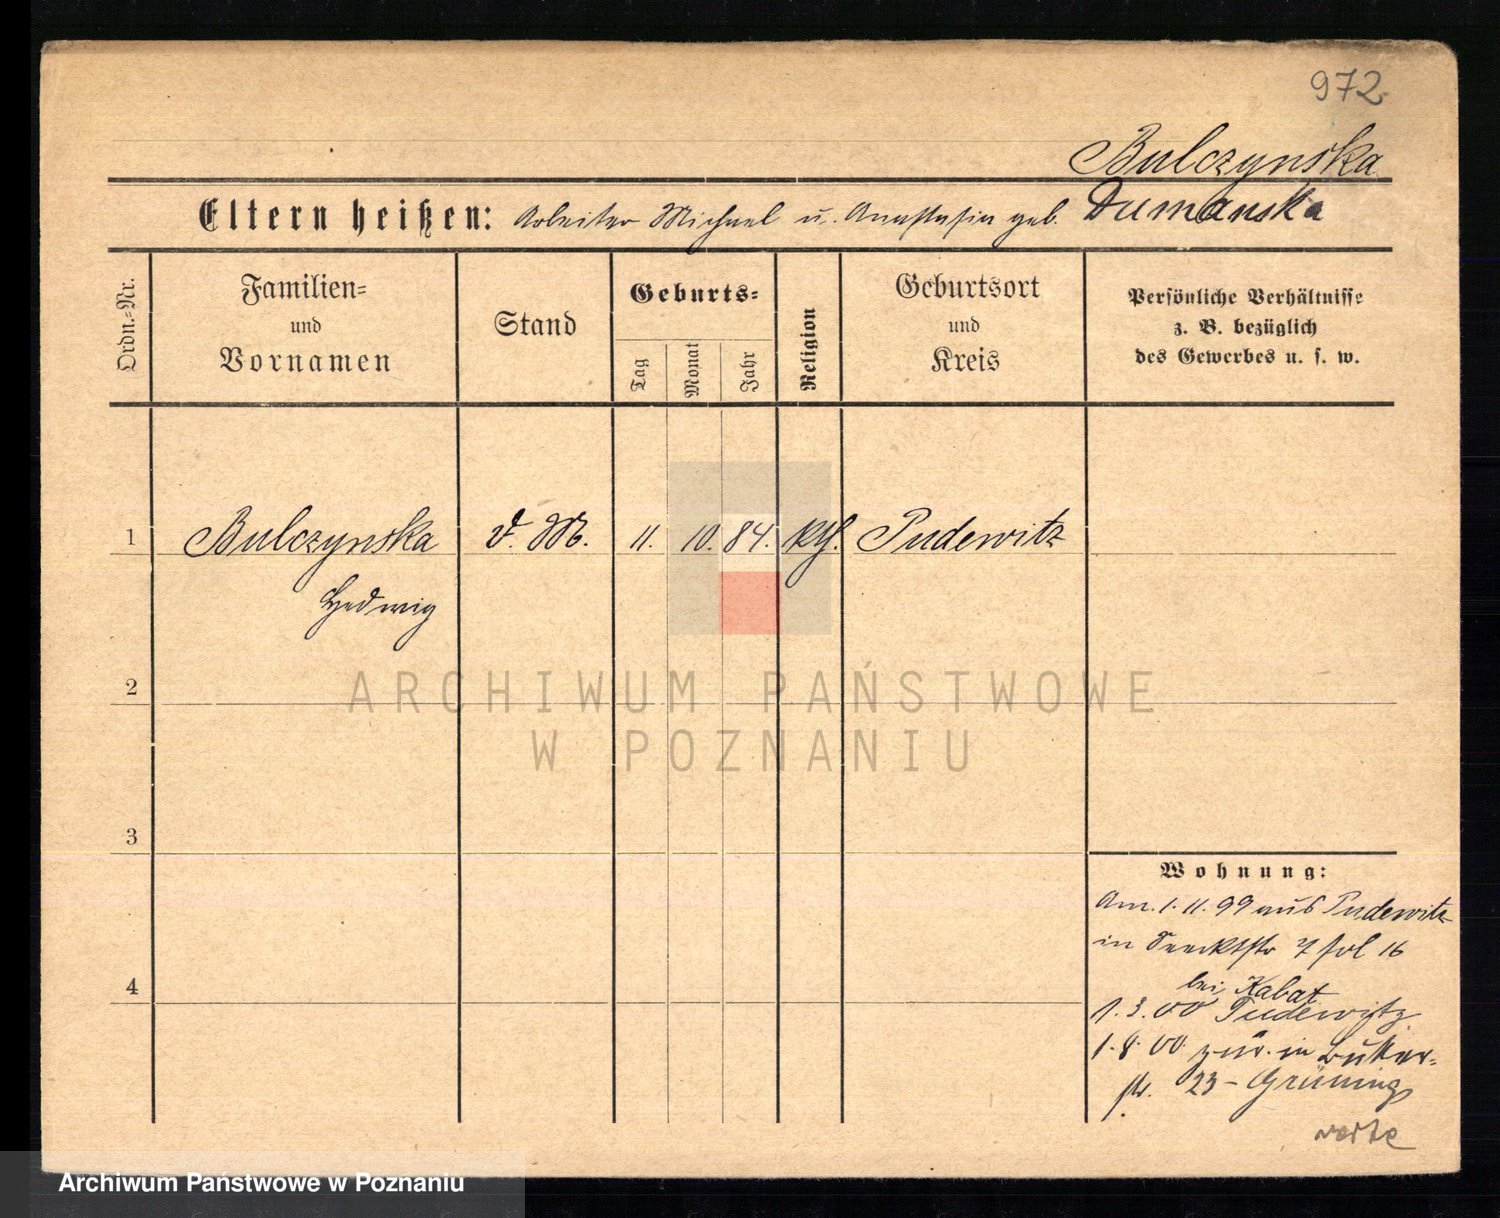 972
Bulczynska
Eltern heißen: Arbeiter Michael u. Anastasia geb. Dumanska
Ordn.=Nr.
Familien=
und
Vornamen
Stand
Geburts=
Tag
Monat
Jahr
Religion
Geburtsort
und
Kreis
Persönliche Verhältnisse
z. B. bezüglich
des Gewerbes u. s. w.
1 Bulczynska d. M. 11. 10. 84. kth. Pudewitz
Hedwig
2
3
4
Wohnung:
Am. 1. 11. 99 aus Pudewitz
in 7 16
bei Kabat
1. 3. 00 Pudewitz
1. 8. 00 zur. in Butter=
str. 23 - Grüning
verte
ARCHIWUM PAŃSTWOWE
W POZNANIU
Archiwum Państwowe w Poznaniu